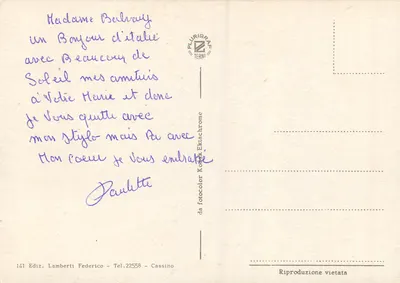 Madame
un Bonjour d'italie
avec Beaucoup de
Soleil mes
à Votre Marie et donc
je Vous quitte avec
mon stylo mais Pa avec
Mon Coeur je Vous embrasse
Paulette
PLURIGRAF
da fotocolor Kodak Ektachrome
141 Ediz. Lamberti Federico - Tel.22558 - Cassino
Riproduzione vietata